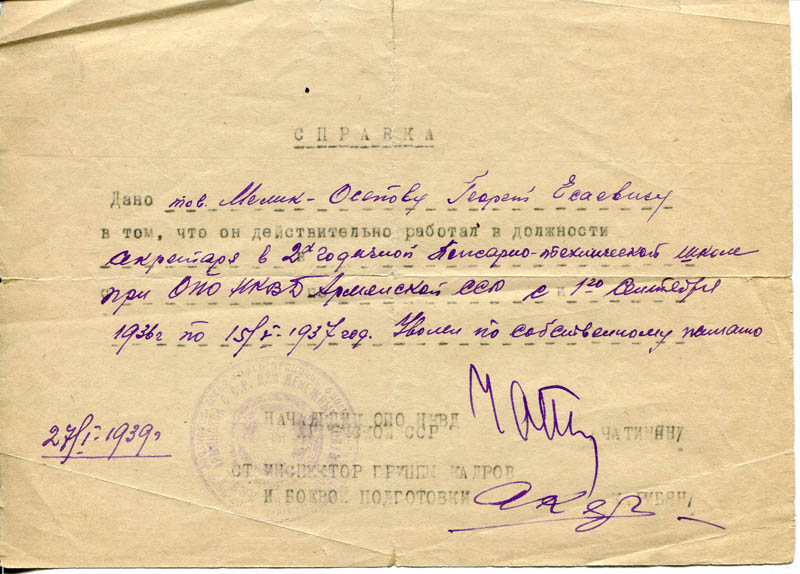 СПРАВКА
Дано тов. Мелик-Осепову Георги Есаевичу
в том, что он действительно работал в должности
секретаря в 2х годичной технической школе
при ОПО НКВД Армянской ССР с 1го Сентября
1936г по 15/ -1937 год. Уволен по собственному желанию
НАЧАЛЬНИК ОПО НКВД
АРМЯНСКОЙ ССР
ЧАТИНЯН/
27/I-1939г
СТ ИНСПЕКТОР ГРУППЫ КАДРОВ
И БОЕВОЙ ПОДГОТОВКИ